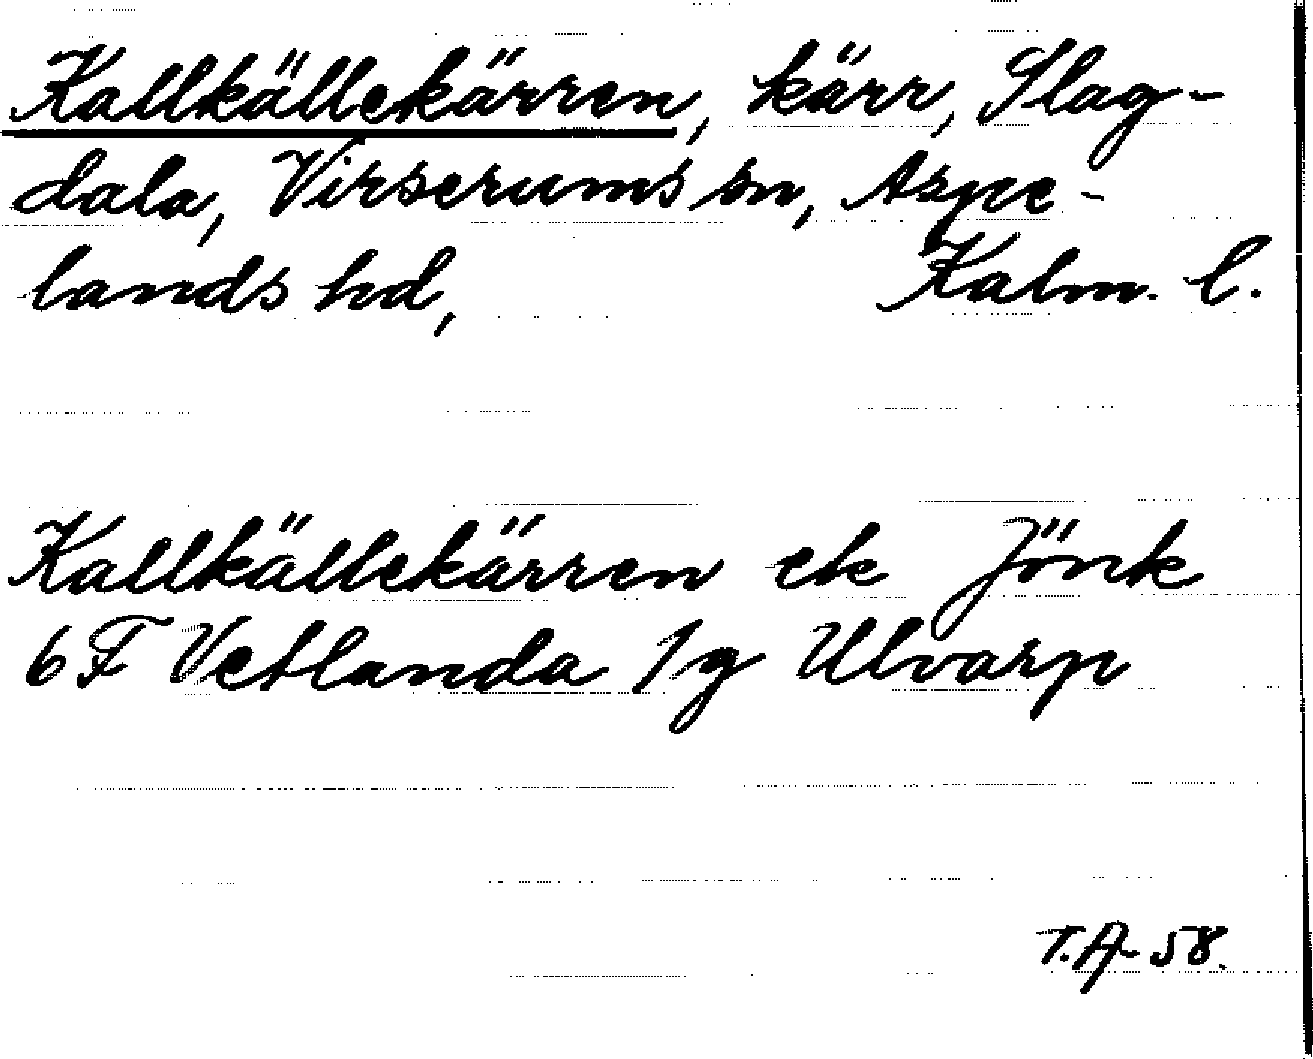 Kallkällekärren, kärr, Slag-
dala, Virserums sn, Aspe-
lands hd, Kalm. l.
Kallkällekärren ek Jönk
6F Vetlanda 1g Ulvarp
T.A-58.